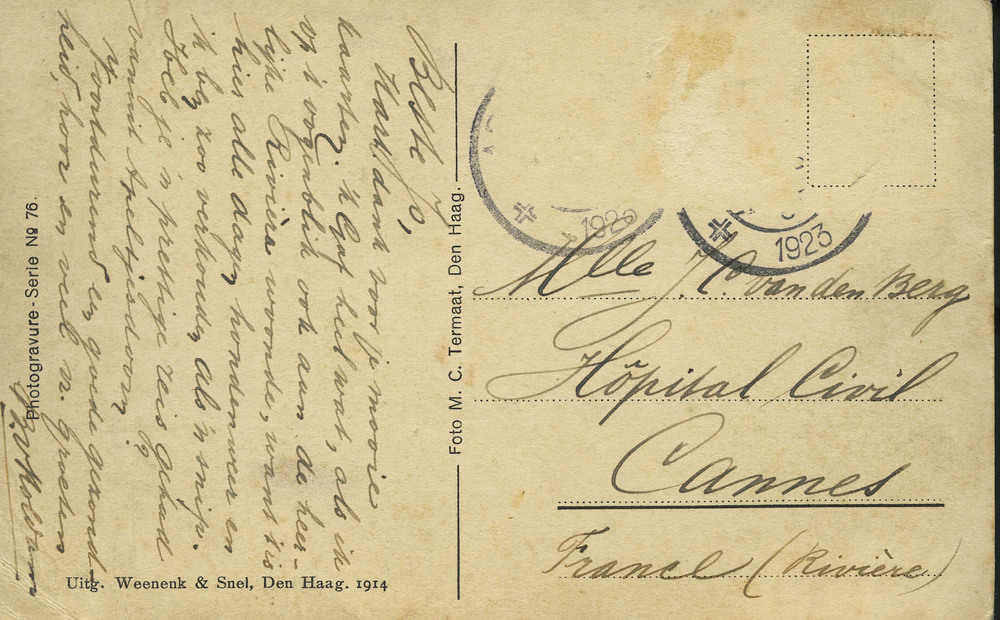 Beste Jo,
Hart. dank voor je mooie
kaarten. 'k Gaf heel wat, als ik
op 't oogenblik ook aan de heer-
lijke Rivièra woonde, want 't is
hier alle dagen hondenweer en
ik ben zoo verkouden als 'n snip.
Heb je 'n prettige reis gehad
vanuit
Voortdurend en goede gezond-
heid, hoor en veel m. groeten
Photogravure-Serie № 76.
Uitg. Weenenk & Snel, Den Haag. 1914
Foto M. C. Termaat, Den Haag.
1923
1923
Mlle J. C. van den Berg
Hôpital Civil
Cannes
France (Rivière)